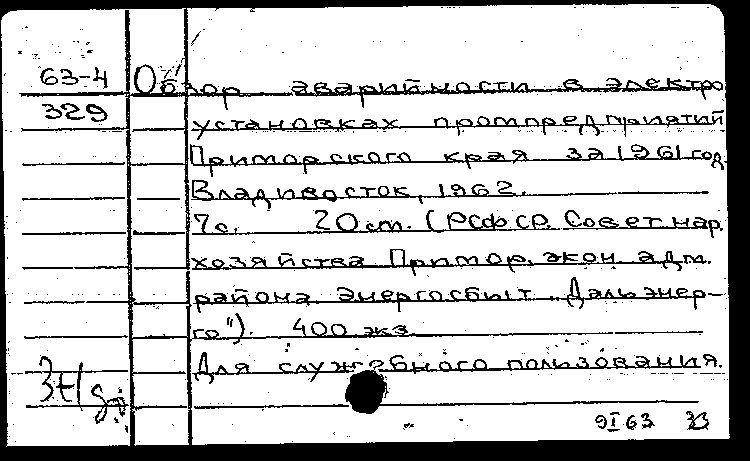 63-4 Обзор аварийности в электро
329 установках промпредприятий
Приморского края за 1961 год.
Владивосток, 1962.
7с. 20 см. (РСФСР. Совет нар.
хозяйства Примор. экон. адм.
района. Энергосбыт „Дальэнер-
го"). 400 экз.
Для служебного пользования.
9 I 63